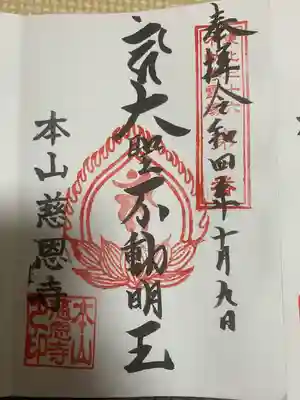 奉拝 令和四年十月九日
大聖不動明王
本山慈恩寺
本山
慈恩寺
之印